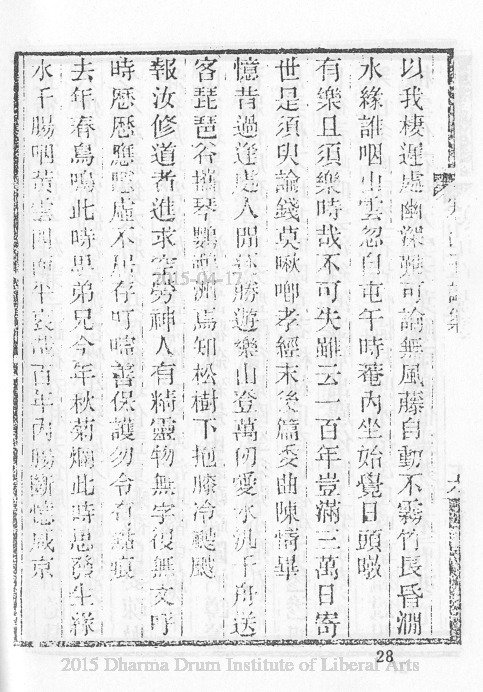 以我棲遲處幽深難可論無風藤自動不霧竹長昏澗
水緣誰咽山雲忽自屯午時菴內坐始覺日頭暾
有樂且須樂時哉不可失雖云一百年豈滿三萬日寄
世是須臾論錢莫啾唧孝經末後篇委曲陳情畢
憶昔過逢處人間逐勝遊樂山登萬仞愛水汎千舟送
客琵琶谷攜琴鸚鵡洲焉知松樹下抱膝冷颼颼
報汝修道者進求空勞神人有精靈物無字復無文呼
時歷歷應隱處不居存叮嚀善保護勿令有點痕
去年春鳥鳴此時思弟兄今年秋菊爛此時思發生綠
水千腸咽黃雲四面平哀哉百年內腸斷憶咸京
2015-04-17
28
2015 Dharma Drum Institute of Liberal Arts